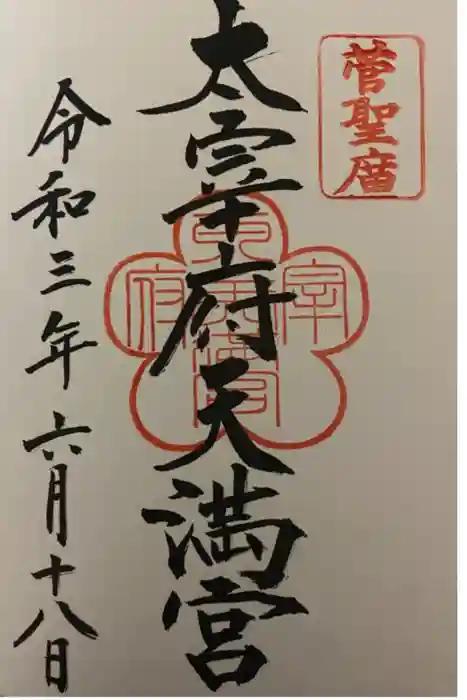 菅聖庿
太宰府天満宮
令和三年六月十八日